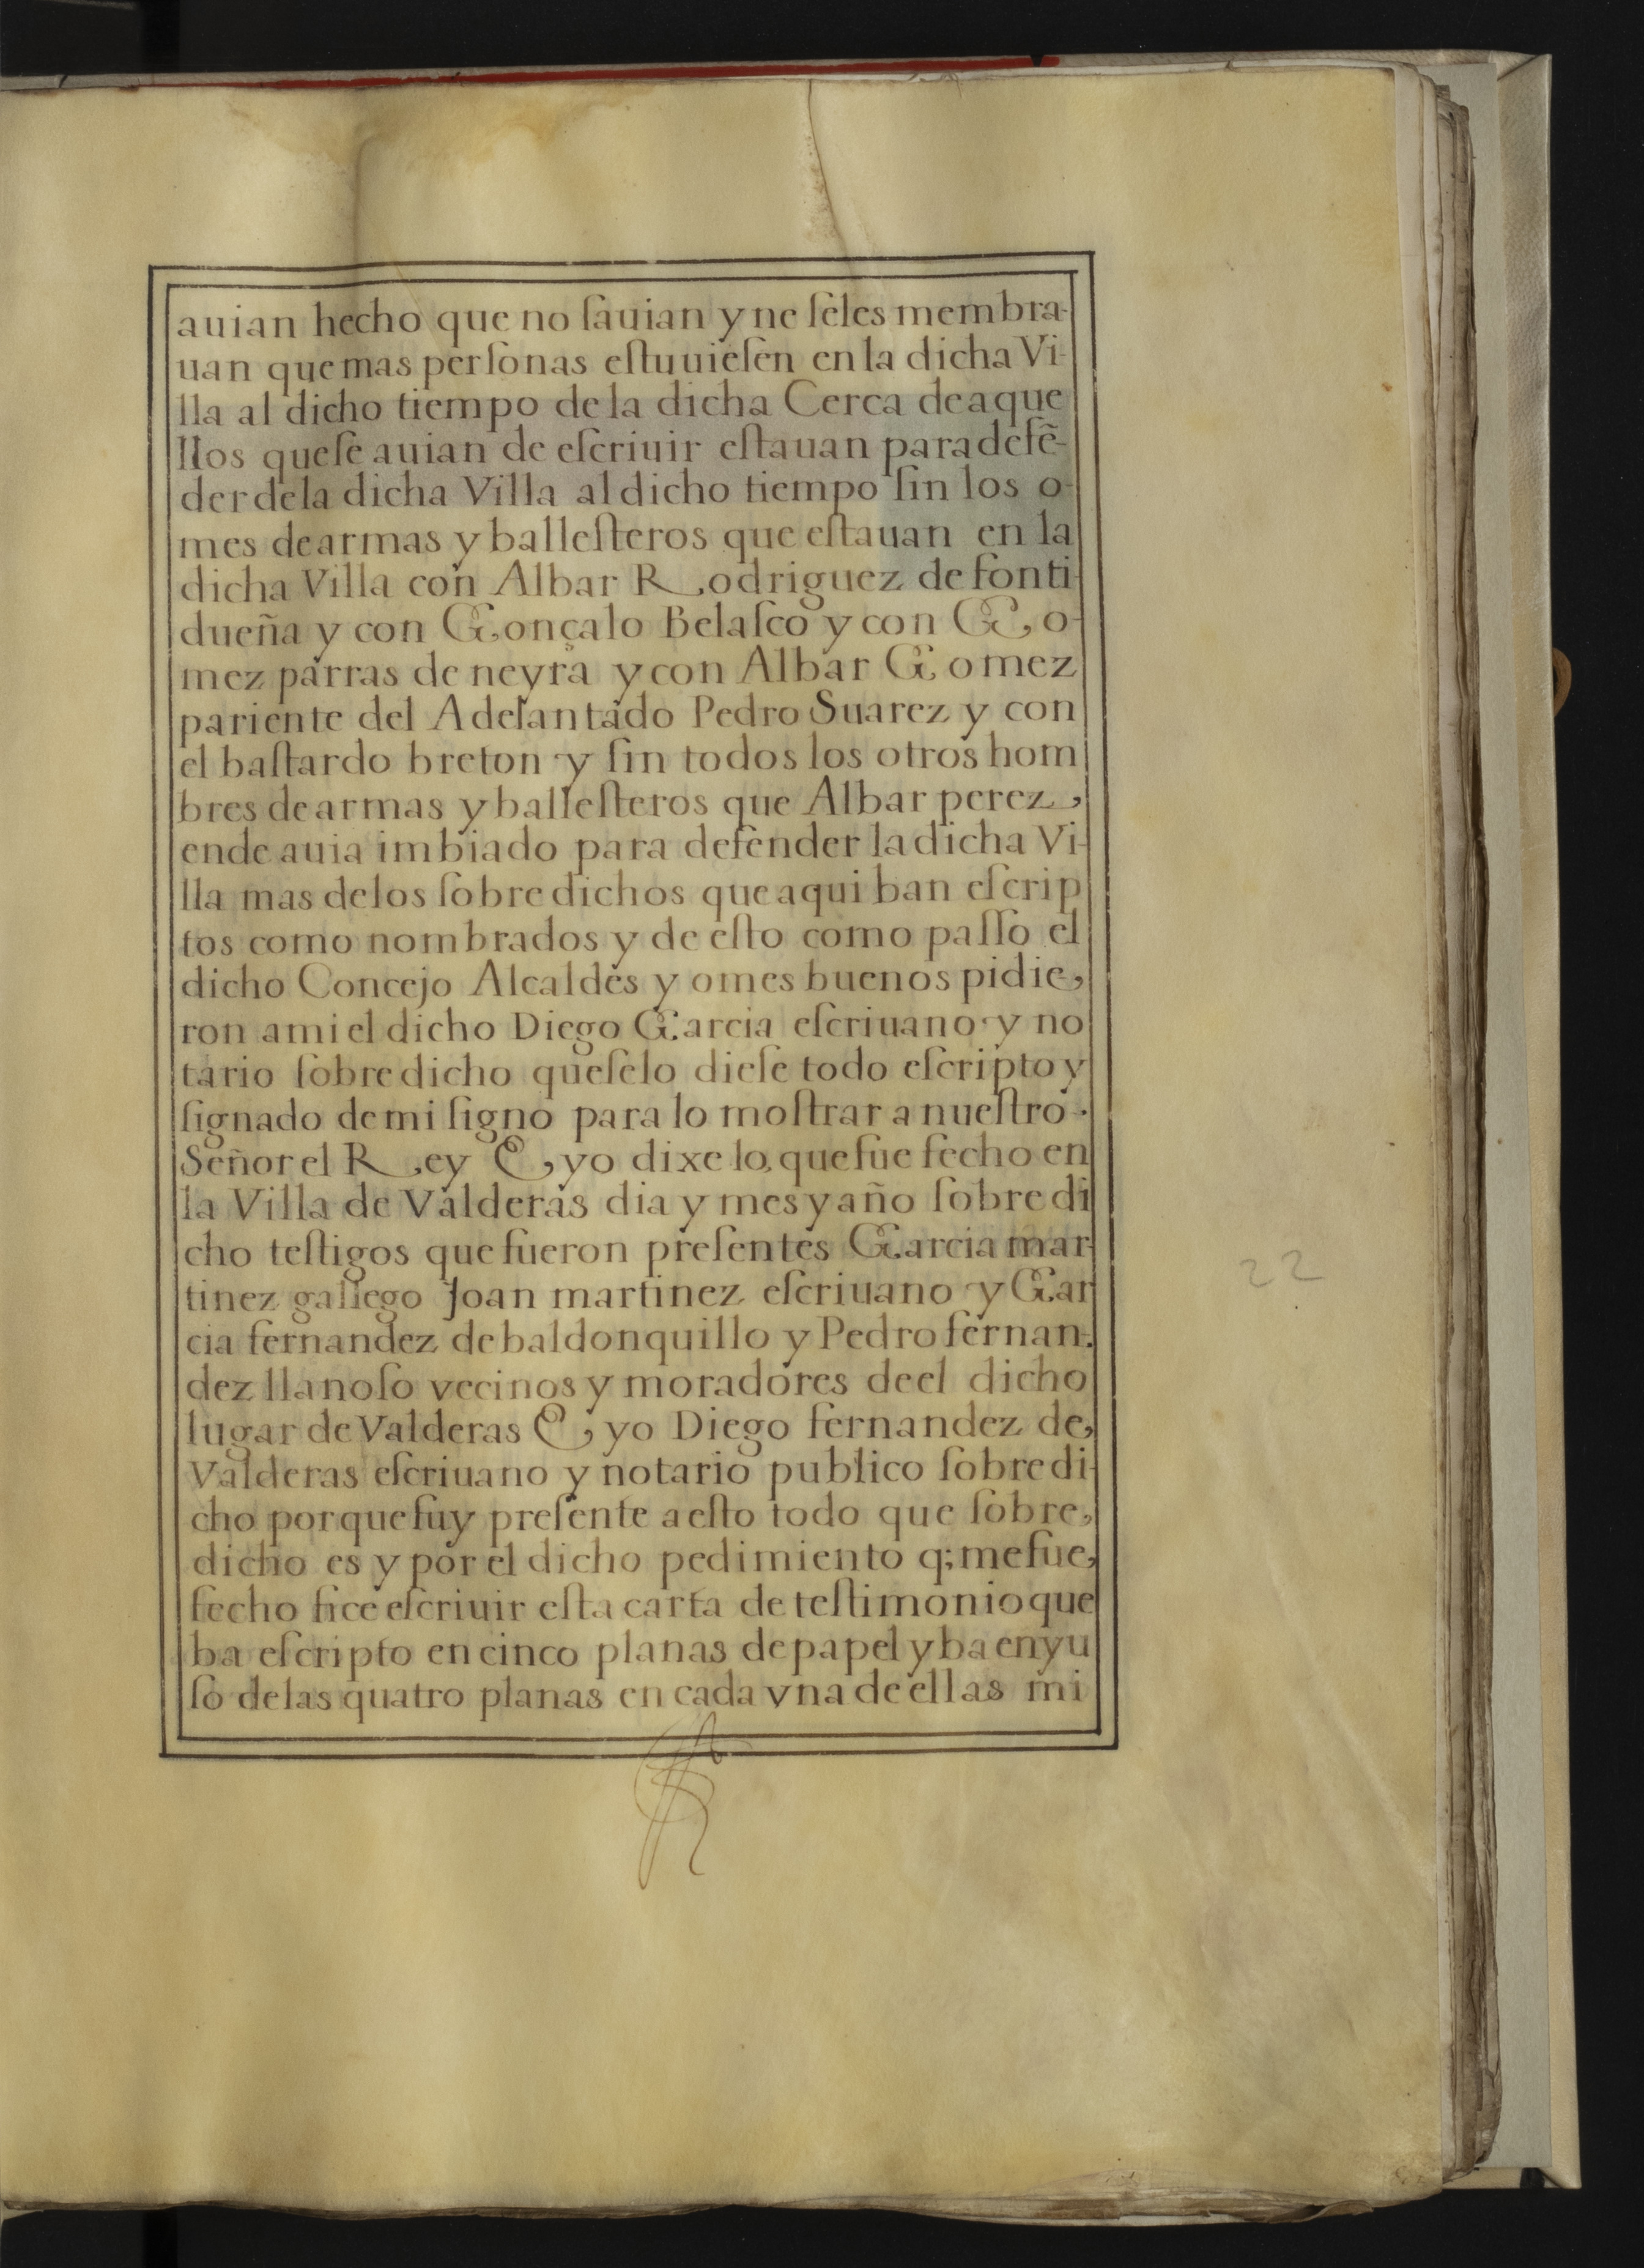 auian hecho que no ſauian y ne ſeles membra-
uan que mas perſonas eſtuuieſen en la dicha Vi-
lla al dicho tiempo de la dicha Cerca de aque
llos queſe auian de eſcriuir eſtauan para defẽ-
der dela dicha Villa al dicho tiempo ſin los o-
mes de armas y balleſteros que eſtauan en la
dicha Villa con Albar Rodriguez de fonti-
dueña y con Gonçalo Belaſco y con Go-
mez parras de neyra y con Albar Gomez
pariente del Adelantado Pedro Suarez y con
el baſtardo breton y ſin todos los otros hom
bres de armas y balleſteros que Albar perez,
ende auia imbiado para defender la dicha Vi-
lla mas delos ſobre dichos que aqui ban eſcrip
tos como nombrados y de eſto como paſſo el
dicho Concejo Alcaldes y omes buenos pidie,
ron a mi el dicho Diego Garcia eſcriuano y no
tario ſobre dicho queſelo dieſe todo eſcripto y
ſignado de mi ſigno para lo moſtrar a nueſtro.
Señor el Rey E, yo dixe lo, que fue fecho en
la Villa de Valderas dia y mes y año ſobre di
cho teſtigos que fueron preſentes Garcia mar-
tinez gallego Joan martinez eſcriuano y Gar
cia fernandez de baldonquillo y Pedro fernan-
dez llanoſo vecinos y moradores de el dicho
lugar de Valderas E, yo Diego fernandez de,
Valderas eſcriuano y notario publico ſobre di-
cho porque fuy preſente a eſto todo que ſobre,
dicho es y por el dicho pedimiento q; me fue,
fecho fice eſcriuir eſta carta de teſtimonio que
ba eſcripto en cinco planas de papel y ba en yu
ſo de las quatro planas en cada vna de ellas mi
22